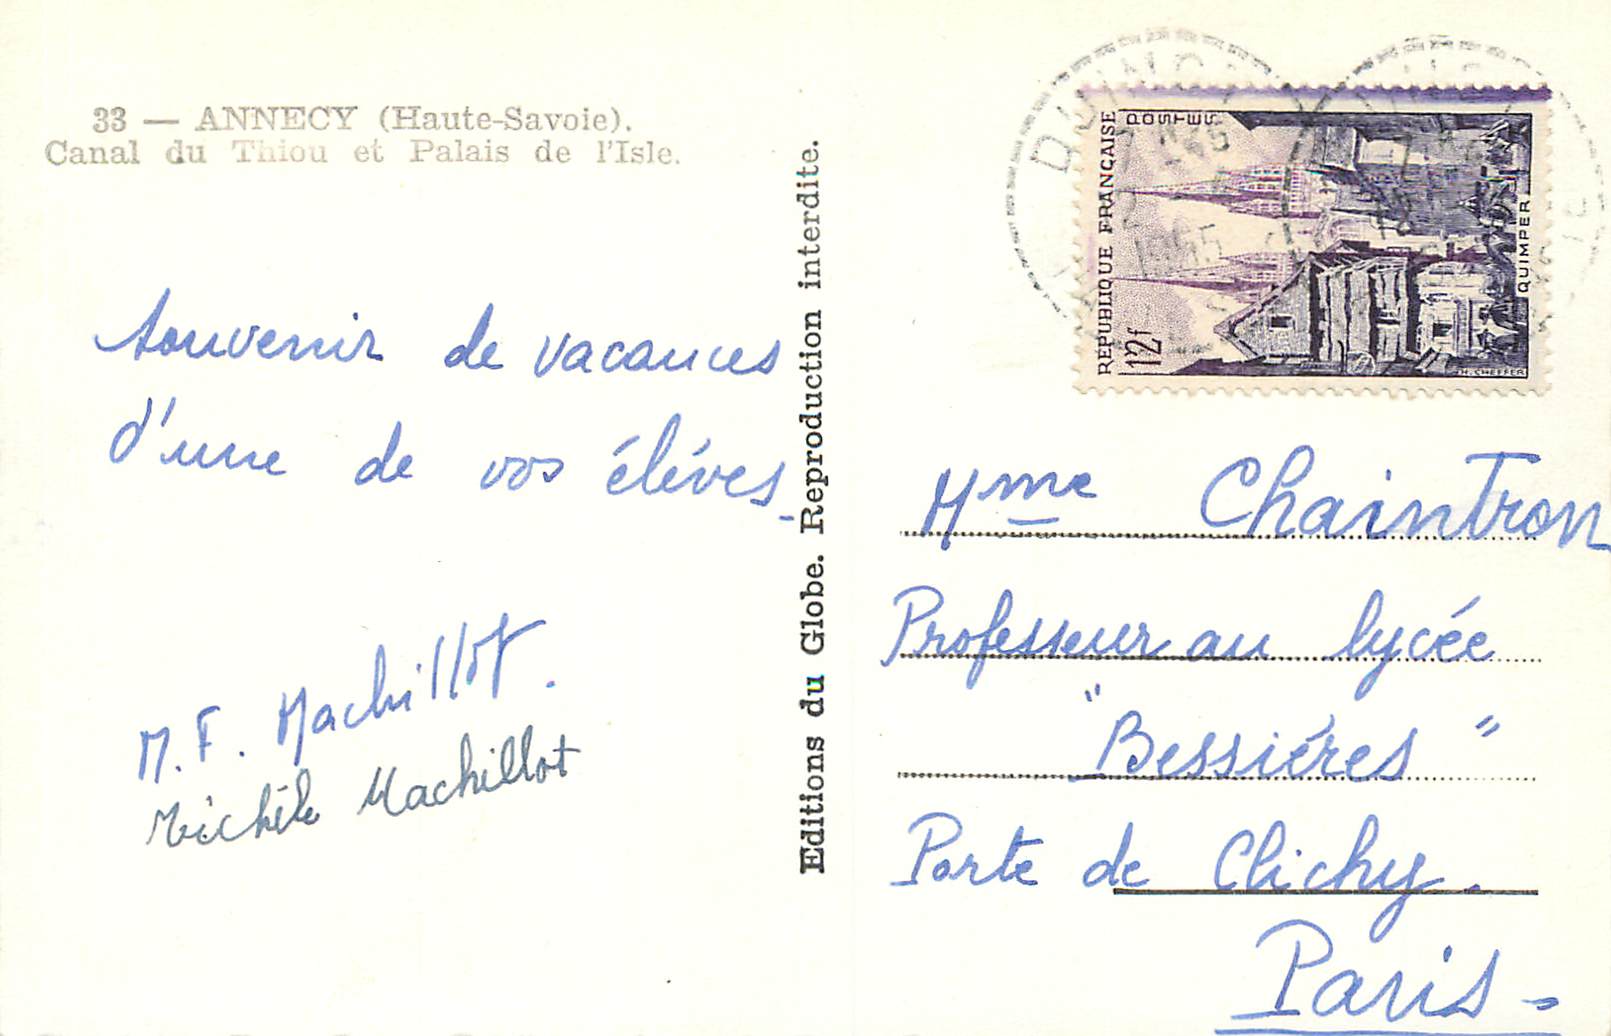 33 — ANNECY (Haute-Savoie).
Canal du Thiou et Palais de l'Isle.
Souvenir de vacances
d'une de vos élèves
M. F. Machillot.
Michèle Machillot
Editions du Globe. Reproduction interdite.
REPUBLIQUE FRANÇAISE
POSTES
12f
QUIMPER
H. CHEFFER
Mme Chaintron
Professeur au lycée
"Bessiéres"
Porte de Clichy.
Paris -